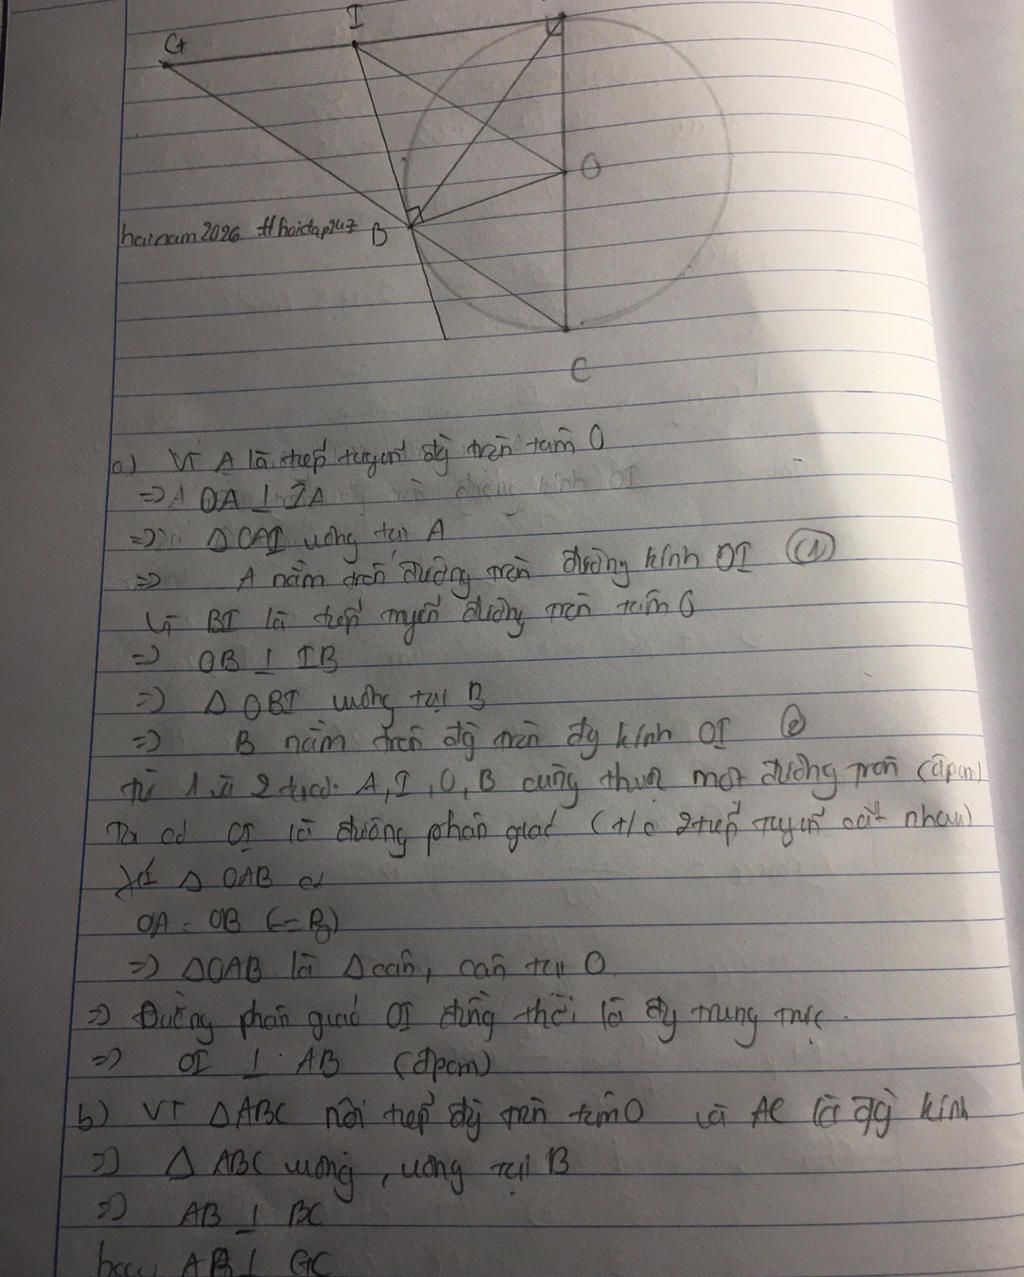 I
G
O
hainam2026 #hoidap247
B
C
a) Vì A là tiếp tuyến đg tròn tâm O
=> OA ⊥ IA
=> Δ OAI vuông tại A
=> A nằm trên đường tròn đường kính OI (1)
Vì BI là tiếp tuyến đường tròn tâm O
=> OB ⊥ IB
=> Δ OBI vuông tại B
=> B nằm trên đg tròn đg kính OI (2)
từ 1 và 2 A, I, O, B cùng thuộc một đường tròn (đpcm)
Ta có OI là đường phân giác (t/c 2 tiếp tuyến cắt nhau)
Xét Δ OAB có
OA = OB (= R)
=> ΔOAB là Δ cân, cân tại O
=> Đường phân giác OI đồng thời là đg trung trực.
=> OI ⊥ AB (đpcm)
b) Vì ΔABC nội tiếp đg tròn tâm O và AC là đg kính
=> Δ ABC vuông, vuông tại B
=> AB ⊥ BC
hay AB ⊥ GC